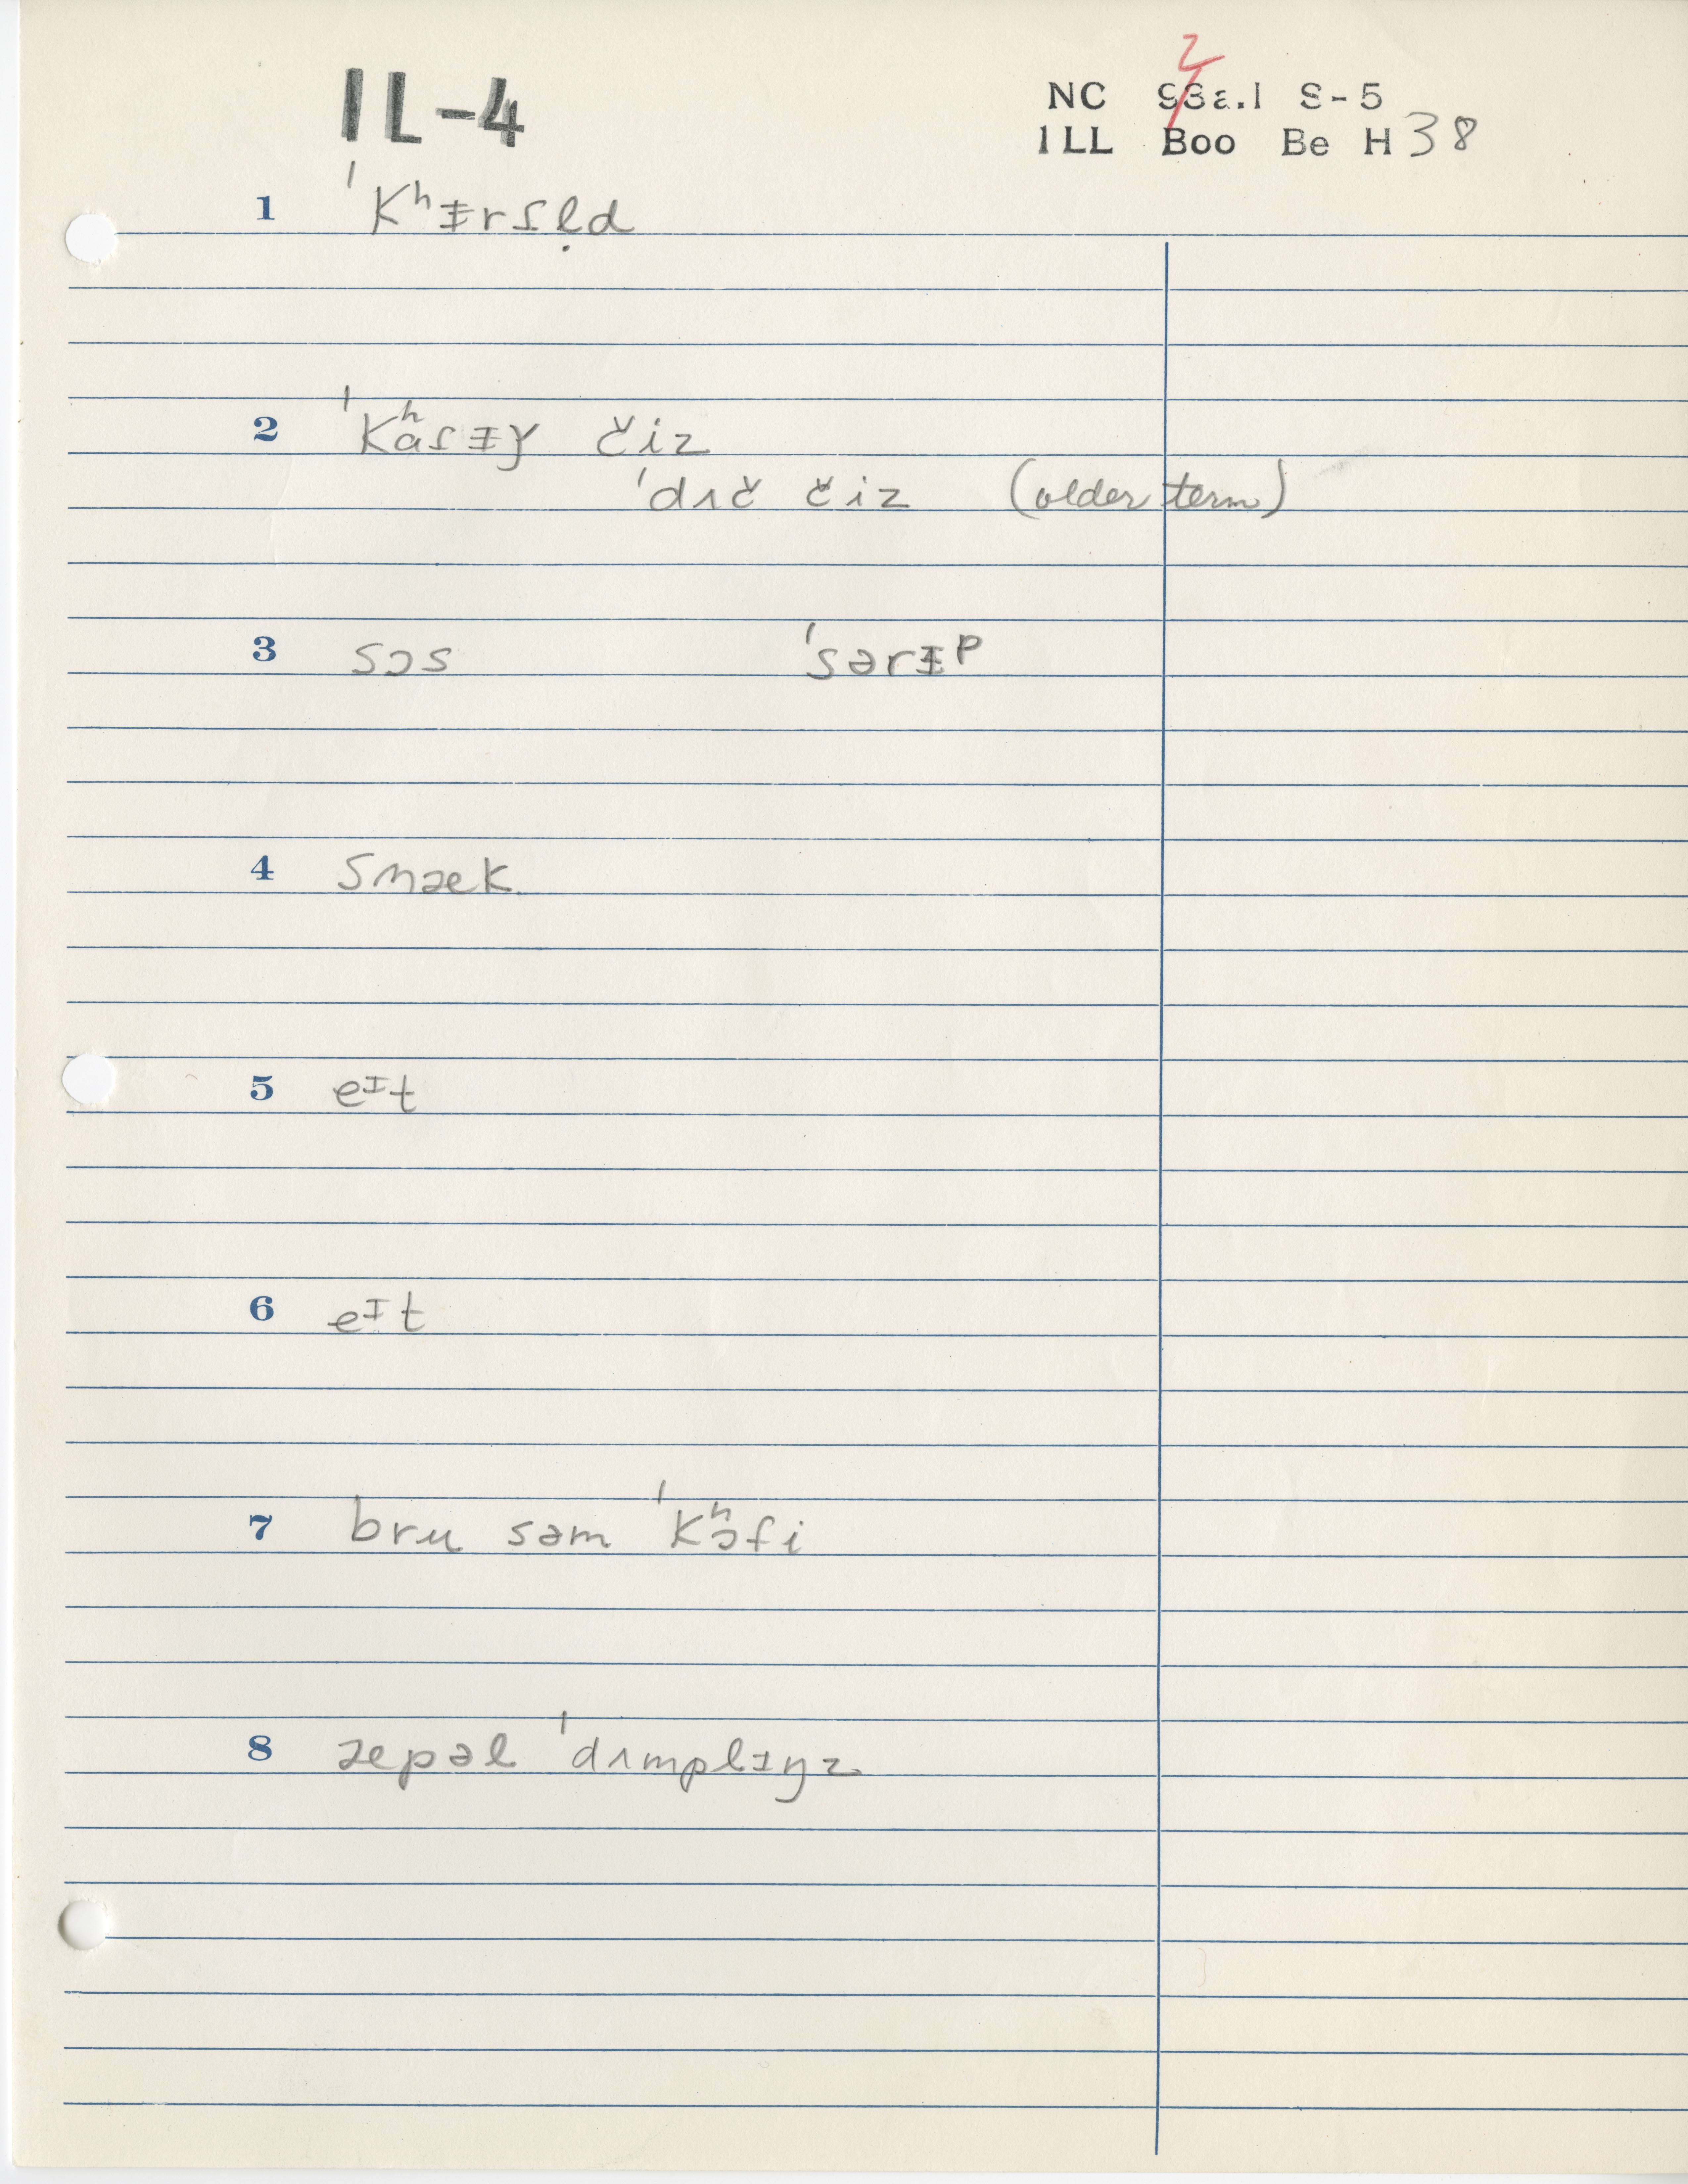 IL-4
NC 93a.1 S-5
2
ILL Boo Be H 38
1 ˈkʰᵻrdl̩d
2 ˈkʰɑdᵻǰ čiz
ˈdʌč čiz (older term)
3 sɔs ˈsərᵻp
4 snæk
5 eᴵt
6 eᴵt
7 bru səm ˈkʰɔfi
8 æpəl ˈdʌmplɪŋz